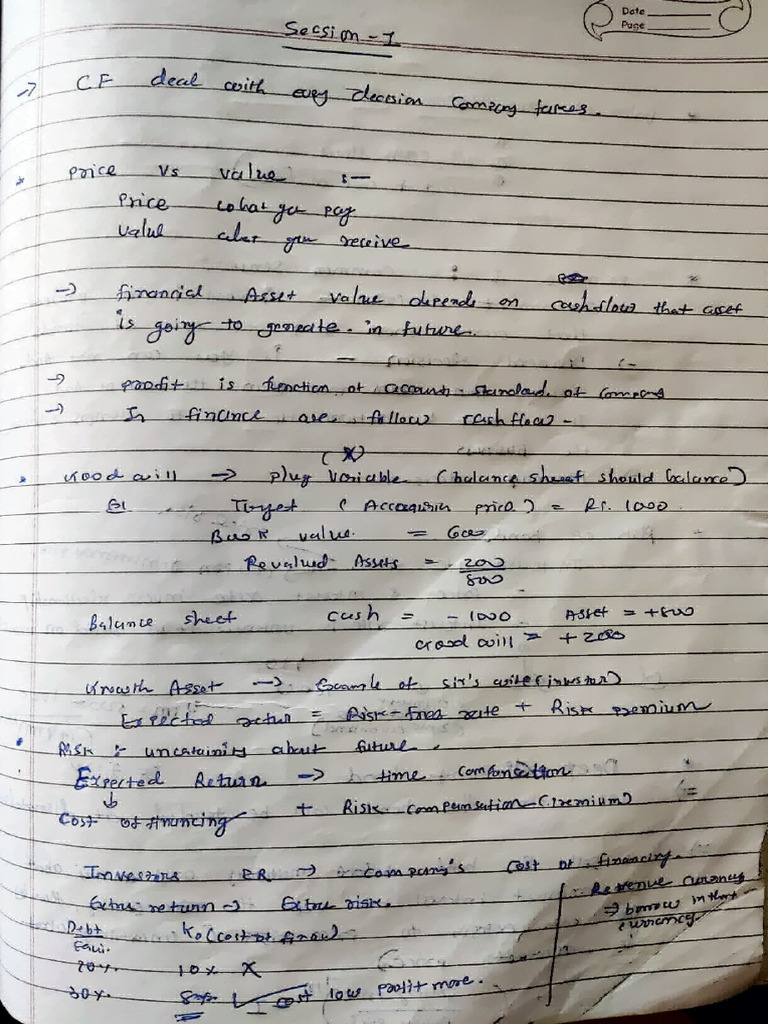 Date
Page
Secsion - I
→ CF deal with every decision Company faces.
* Price vs value :-
Price what you pay
Value what you receive
→ financial Asset value depends on cashflow that asset
is going to generate. in future.
→ profit is function of account. standard. of company
→ In finance are follow cashflow -
(X)
• Good will → plug variable (balance sheet should balance)
Target (Accquisition price) = Rs. 1000
Book value = 600
Revalued Assets = 200
800
Balance sheet cash = - 1000 Asset = +800
Good will = + 200
Growth Asset → Example of sir's wife (investor)
Expected retur = Risk-free rate + Risk premium
• Risk :- uncertainity about future.
Expected Return → time compensation
↓ + Risk compensation (Premium)
Cost of financing
Investors ER → company's cost of financing.
Extra return → Extra risk.
Revenue currency
⇒ borrow in that
currency
Debt K0 (cost of finan)
Equi.
20%. 10% X
30%. 8%. cost low profit more.